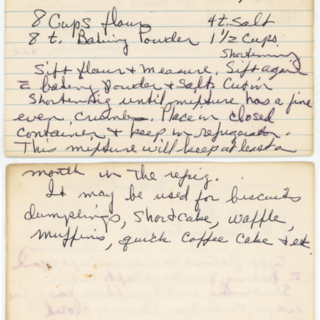 8 Cups flour 4 t. Salt
8 t. Baking Powder 1 1/2 Cups
Shortening
Sift flour & measure. Sift again
c̄ baking powder & salt. Cut in
Shortening until mixture has a fine
even crumb. Place in closed
container & keep in refrigerator.
This mixture will keep at least a
month in the refrig.
It may be used for biscuits
dumplings, Shortcake, waffle,
muffins, quick Coffee Cake & etc.